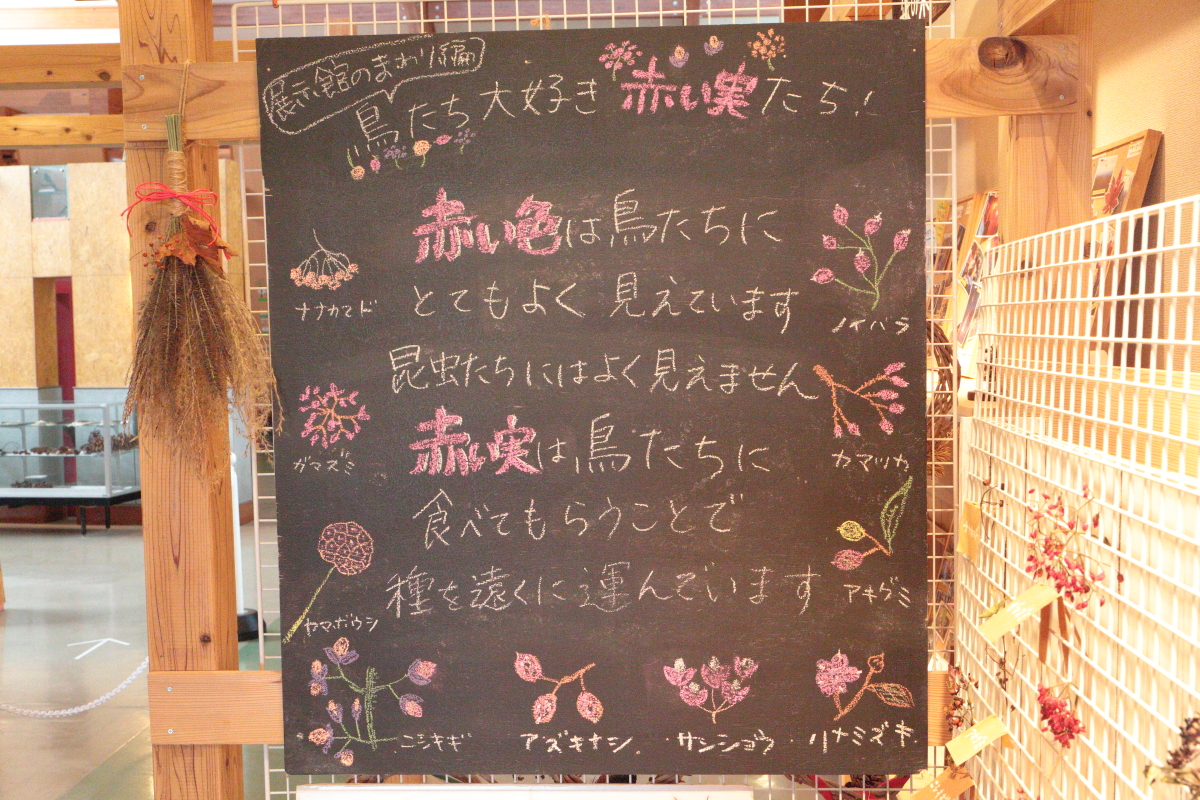 展示館のまわり編
鳥たち大好き赤い実たち!
赤い色は鳥たちに
とてもよく見えています
昆虫たちにはよく見えません
赤い実は鳥たちに
食べてもらうことで
種を遠くに運んでいます
ナナカマド
ノイバラ
ガマズミ
カマツカ
ヤマボウシ
アキグミ
ニシキギ
アズキナシ
サンショウ
ハナミズキ